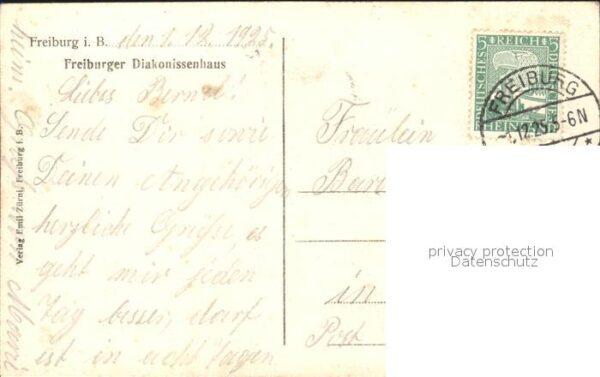 Freiburg i. B. den 1. 12. 1925.
Freiburger Diakonissenhaus
Liebes Bernd!
Sende Dir sowie
Deinen Angehörigen
herzliche Grüße, es
geht mir jeden
Tag besser, darf
ist in acht Tagen
Verlag Emil Zürni, Freiburg i. B.
Fräulein
Bar
in
Post
5 REICH 5
DEUTSCHES
FREIBURG
12.25.5-6N
privacy protection
Datenschutz